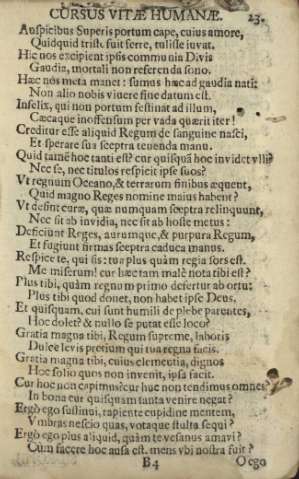 CURSUS VITÆ HUMANÆ. 23.
Auspicibus Superis portum cape, cuius amore,
Quidquid triste fuit ferre, tulisse iuvat.
Hic nos excipient ipsis communia Divis
Gaudia, mortali non referenda sono.
Hæc nos meta manet: sumus hæc ad gaudia nati:
Non alio nobis vivere fine datum est.
Infelix, qui non portum festinat ad illum,
Cæcaque inoffensum per vada quærit iter!
Creditur esse aliquid Regum de sanguine nasci,
Et sperare sua sceptra tenenda manu.
Quid tamẽ hoc tanti est? cur quisquã hoc invidet vlli?
Nec se, nec titulos respicit ipse suos?
Vt regnum Oceano, & terrarum finibus æquent,
Quid magno Reges nomine maius habent?
Vt desint curæ, quæ numquam sceptra relinquunt,
Nec sit ab invidia, nec sit ab hoste metus:
Deficiunt Reges, aurumque, & purpura Regum,
Et fugiunt firmas sceptra caduca manus.
Respice te, qui sis: tua plus quàm regia sors est.
Me miserum! cur hæc tam malè nota tibi est?
Plus tibi, quàm regnum primo defertur ab ortu:
Plus tibi quod donet, non habet ipse Deus.
Et quisquam, cui sunt humili de plebe parentes,
Hoc dolet? & nullo se putat esse loco?
Gratia magna tibi, Regum supreme, laboris
Dulce levis precium qui tua regna facis.
Gratia magna tibi, cuius clementia, dignos
Hoc solio quos non invenit, ipsa facit.
Cur hoc non capimus? cur huc non tendimus omnes?
In bona cur quisquam tanta venire negat?
Ergò ego sustinui, rapiente cupidine mentem,
Vmbras nescio quas, votaque stulta sequi?
Ergò ego plus aliquid, quàm te vesanus amavi?
Cùm facere hoc ausa est, mens vbi nostra fuit?
B4 O ego